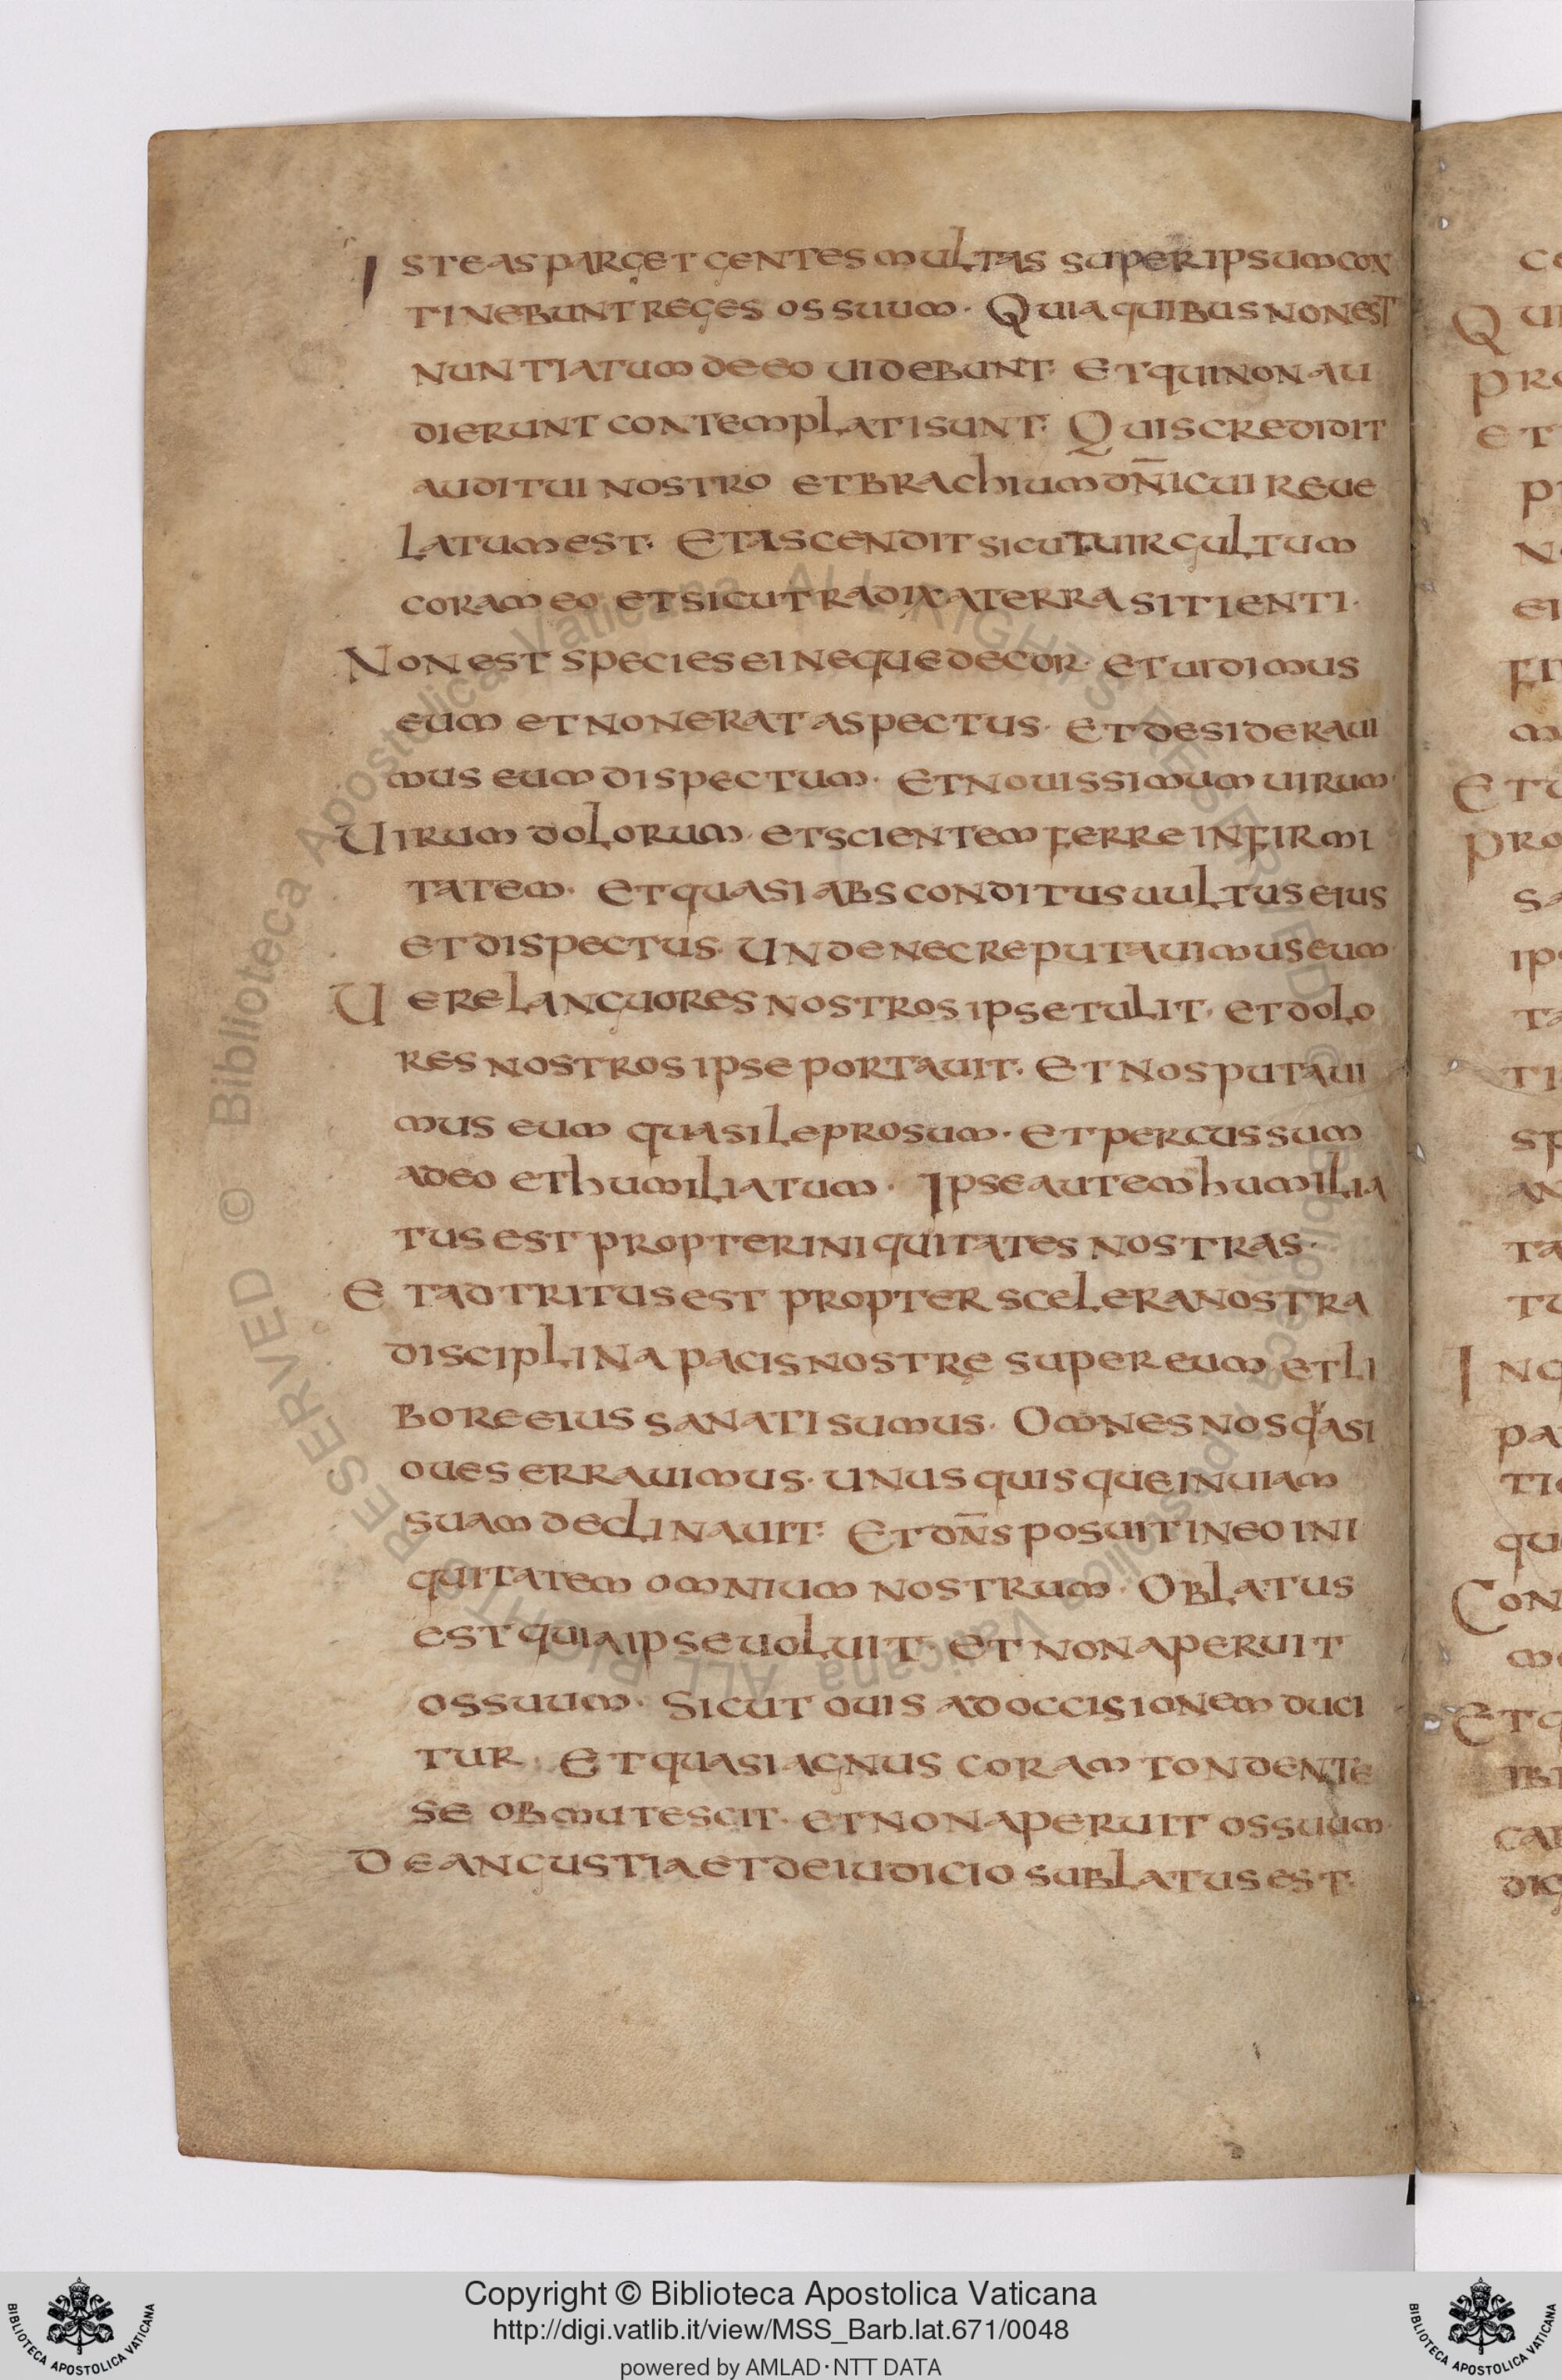 ISTE ASPARGET GENTES MULTAS SUPER IPSUM CON
TINEBUNT REGES OS SUUM· QUIA QUIBUS NON EST
NUNTIATUM DE EO UIDEBUNT· ET QUI NON AU
DIERUNT CONTEMPLATI SUNT· QUIS CREDIDIT
AUDITUI NOSTRO ET BRACHIUM DN̄I CUI REUE
LATUM EST· ET ASCENDIT SICUT UIRGULTUM
CORAM EO ET SICUT RADIX A TERRA SITIENTI·
NON EST SPECIES EI NEQUE DECOR· ET UIDIMUS
EUM ET NON ERAT ASPECTUS· ET DESIDERAUI
MUS EUM DISPECTUM· ET NOUISSIMUM UIRUM·
UIRUM DOLORUM· ET SCIENTEM FERRE INFIRMI
TATEM· ET QUASI ABSCONDITUS UULTUS EIUS
ET DISPECTUS· UNDE NEC REPUTAUIMUS EUM·
UERE LANGUORES NOSTROS IPSE TULIT· ET DOLO
RES NOSTROS IPSE PORTAUIT· ET NOS PUTAUI
MUS EUM QUASI LEPROSUM· ET PERCUSSUM
A DEO ET HUMILIATUM· IPSE AUTEM HUMILIA
TUS EST PROPTER INIQUITATES NOSTRAS·
ET ADTRITUS EST PROPTER SCELERA NOSTRA
DISCIPLINA PACIS NOSTRĘ SUPER EUM ET LI
BORE EIUS SANATI SUMUS· OMNES NOS QᵃASI
OUES ERRAUIMUS· UNUSQUISQUE IN UIAM
SUAM DECLINAUIT· ET DN̄S POSUIT IN EO INI
QUITATEM OMNIUM NOSTRUM· OBLATUS
EST QUIA IPSE UOLUIT· ET NON APERUIT
OS SUUM· SICUT OUIS AD OCCISIONEM DUCI
TUR· ET QUASI AGNUS CORAM TONDENTE
SE OBMUTESCIT· ET NON APERUIT OS SUUM·
DE ANGUSTIA ET DE IUDICIO SUBLATUS EST·
Copyright © Biblioteca Apostolica Vaticana
http://digi.vatlib.it/view/MSS_Barb.lat.671/0048
powered by AMLAD·NTT DATA
BIBLIOTECA APOSTOLICA VATICANA
BIBLIOTECA APOSTOLICA VATICANA